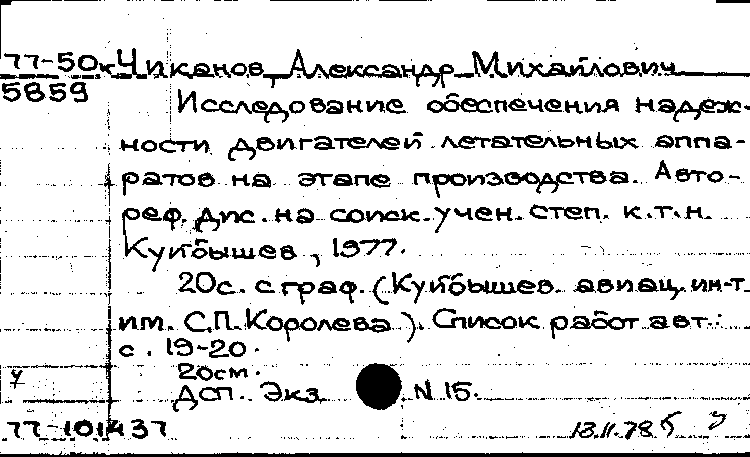 77-50к Чиканов, Александр Михайлович
5859
Исследование обеспечения надеж-
ности двигателей летательных аппа-
ратов на этапе производства. Авто-
реф. дис. на соиск. учен. степ. к.т.н.
Куйбышев, 1977.
20с. с граф. (Куйбышев. авиац. ин-т
им. С.П. Королева). Список работ авт.:
с. 19-20.
20см.
ДСП. Экз. N 15.
у
77-101437 13.11.78